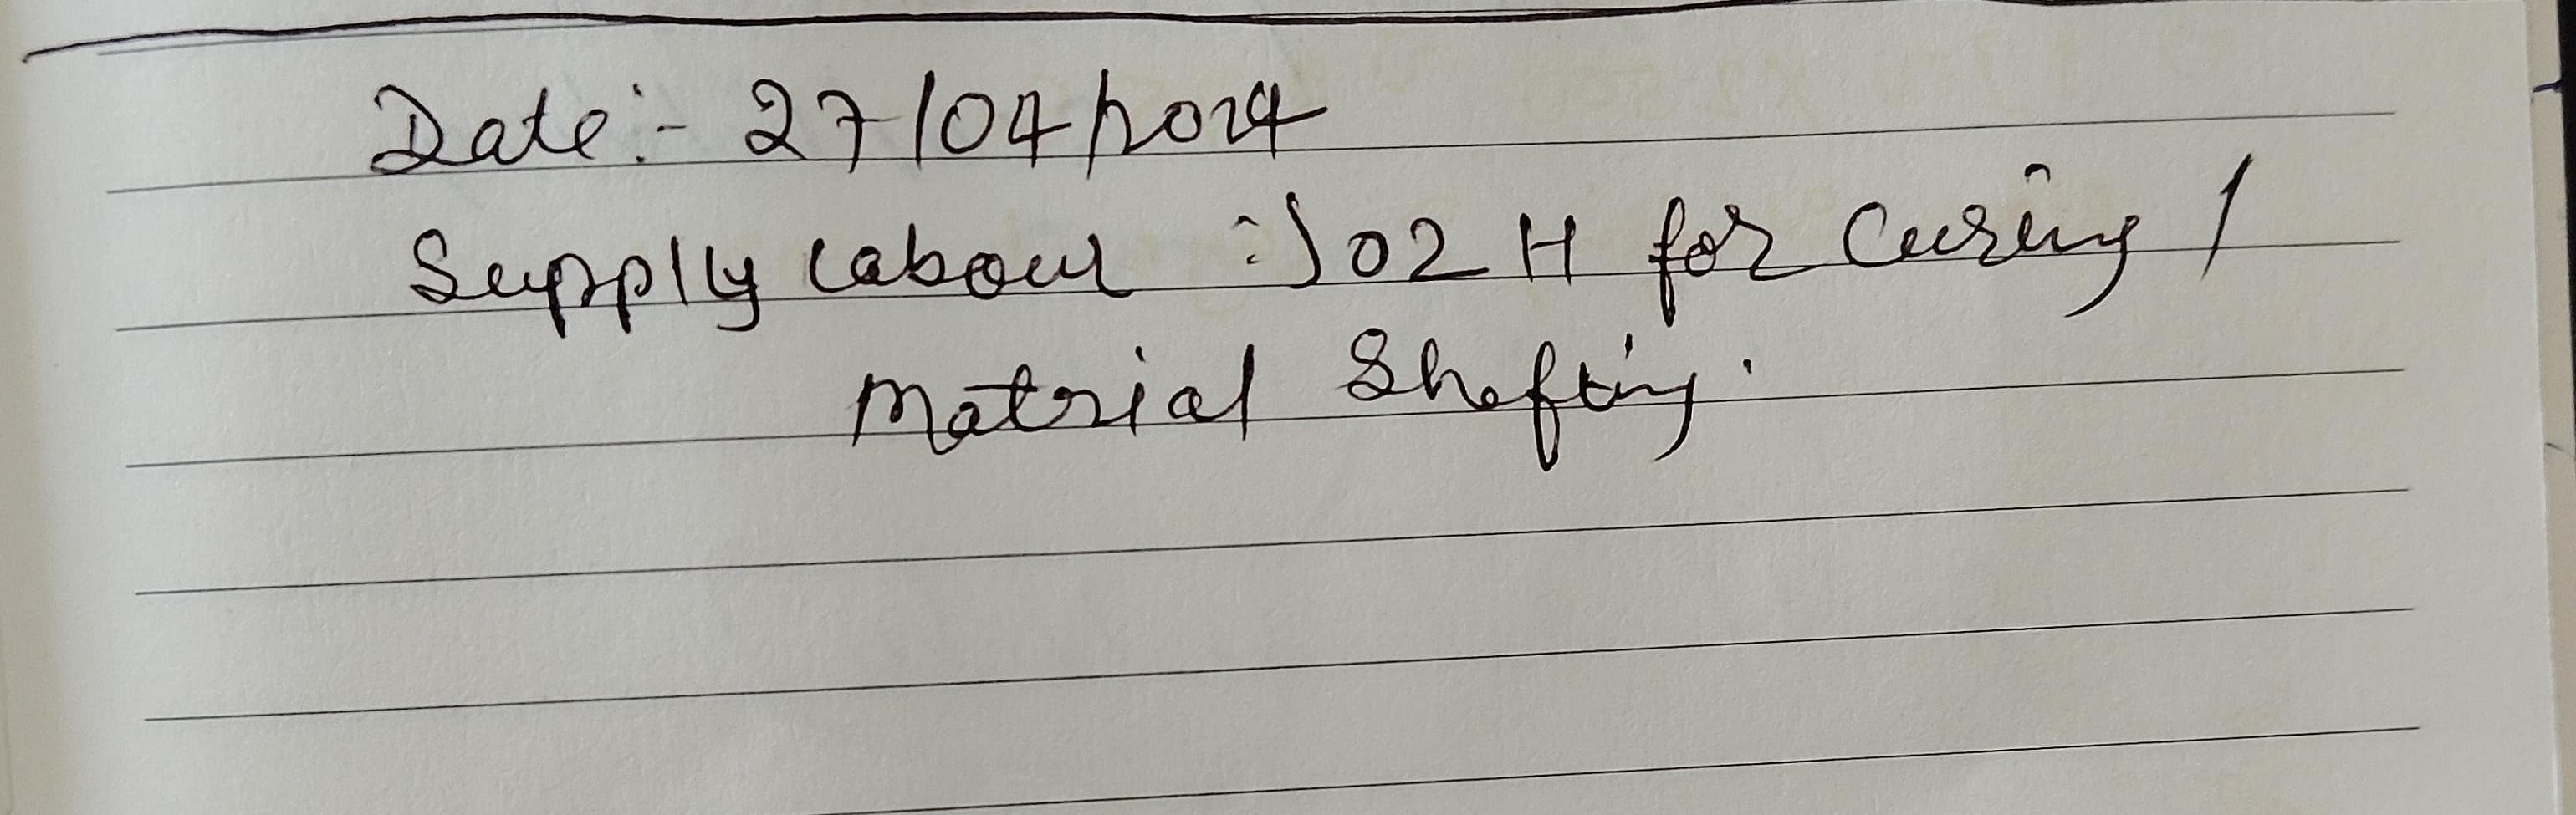 Date:- 27/04/2024
Supply labour :) 02 H for Curing /
Matrial Shefting.